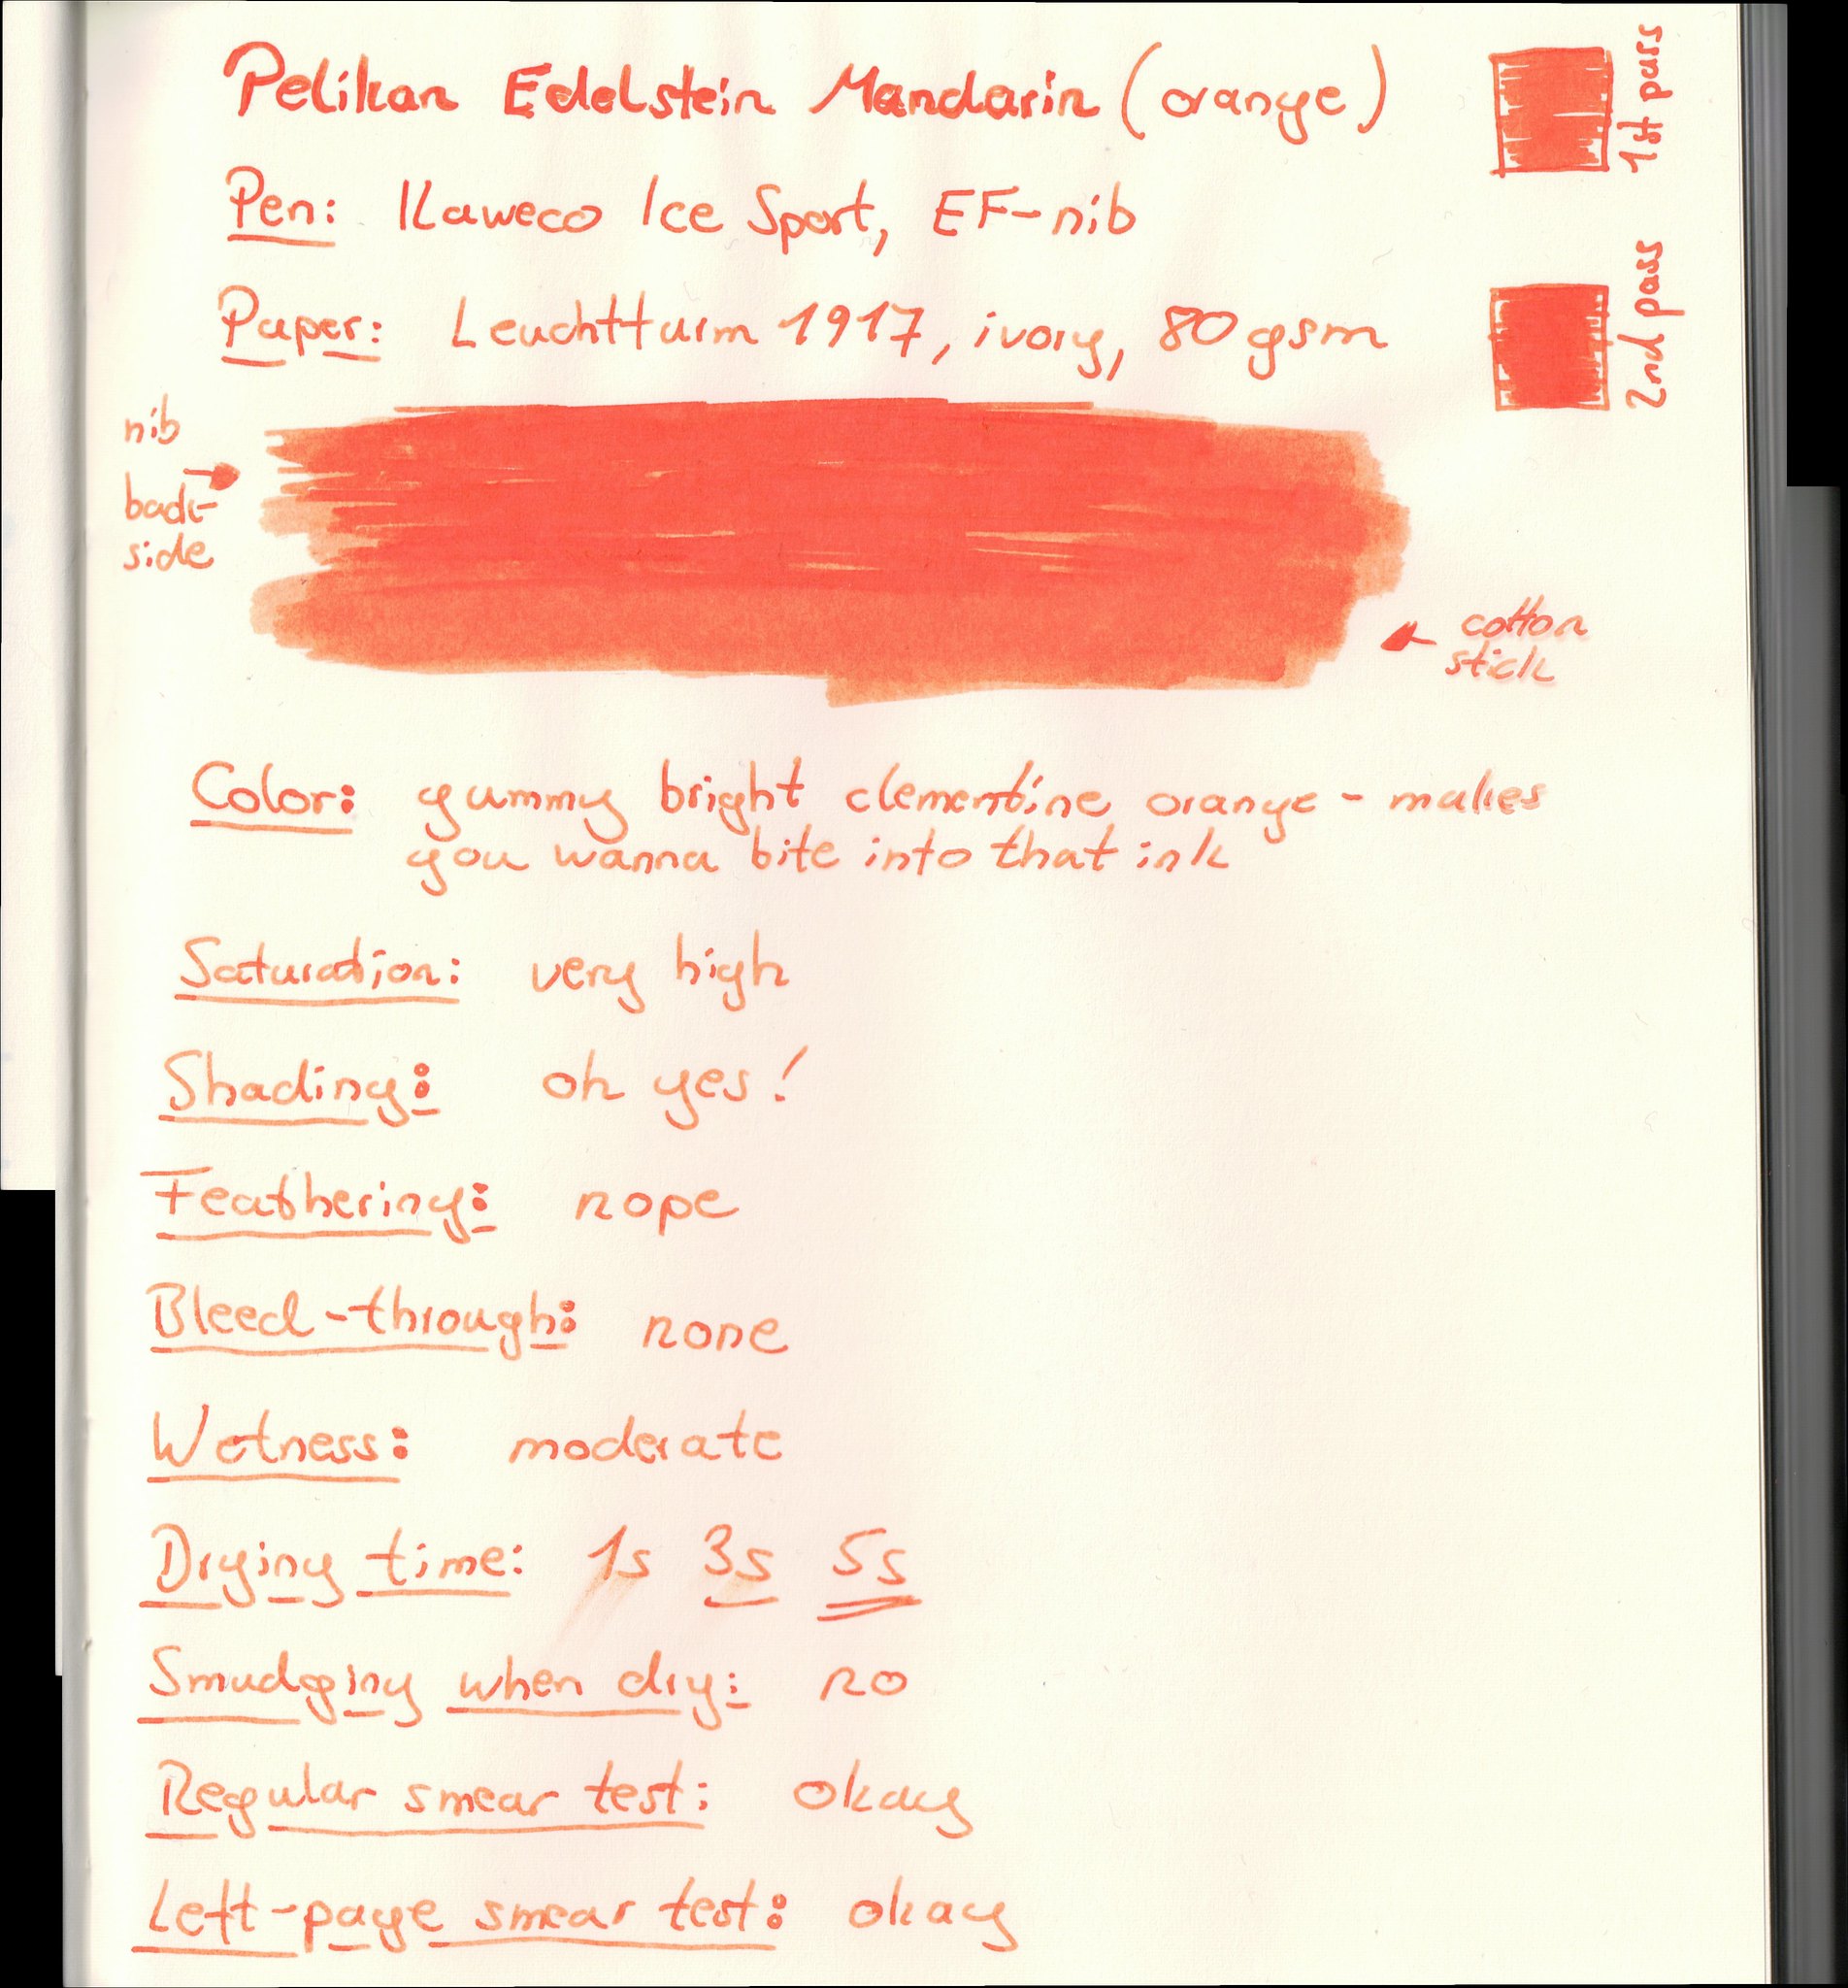 Pelikan Edelstein Mandarin (orange)
1st pass
Pen: Kaweco Ice Sport, EF-nib
Paper: Leuchtturm 1917, ivory, 80 gsm
2nd pass
nib
back-
side
cotton
stick
Color: yummy bright clementine orange - makes
you wanna bite into that ink
Saturation: very high
Shading: oh yes!
Feathering: nope
Bleed-through: none
Wetness: moderate
Drying time: 1s 3s 5s
Smudging when dry: no
Regular smear test: okay
Left-page smear test: okay